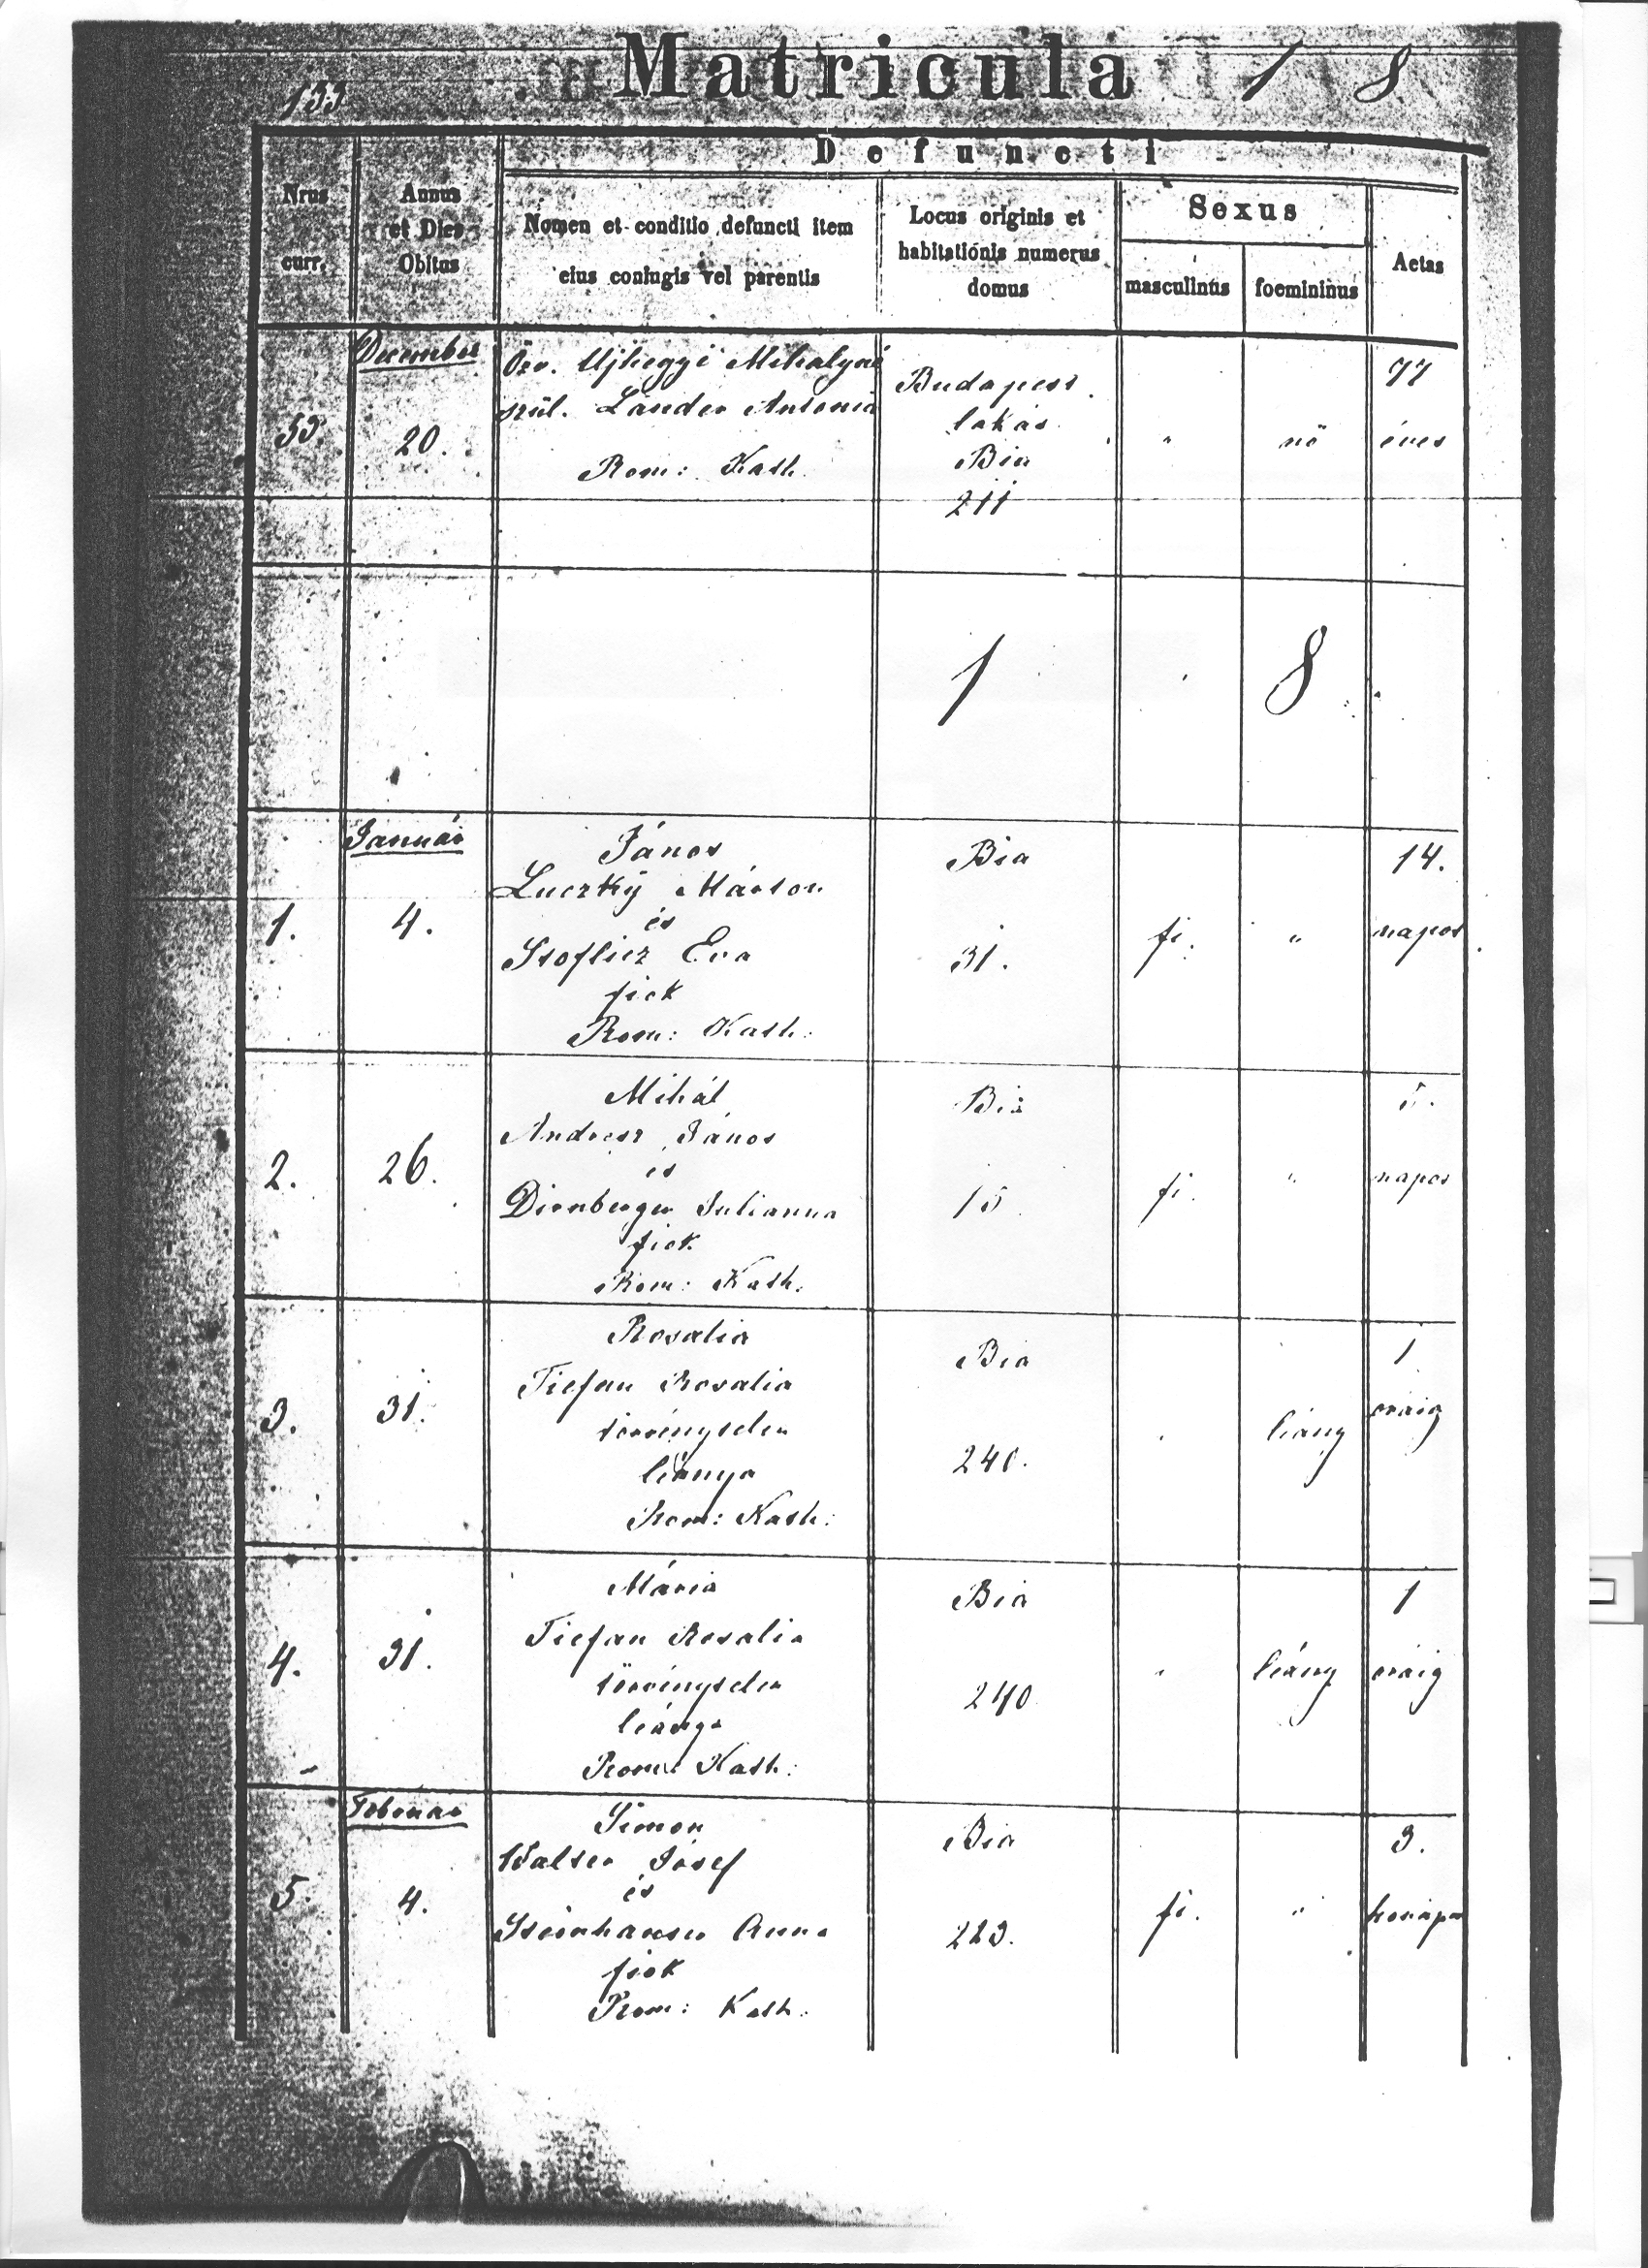 133
Matricula 1 8
Defuncti
Nrus curr.
Annus et Dies Obitus
Nomen et conditio defuncti item eius coniugis vel parentis
Locus originis et habitationis numerus domus
Sexus
masculinus
foemininus
Aetas
December
20.
Özv. Ujhegyi Mihalyné
szül. Lander Antonia
Rom: Kath.
Budapest
lakás
Bia
211
"
nő
77
éves
1 8
Január
1.
4.
János
Luczky Márton
és
Stoflicz Eva
fiok
Rom: Kath:
Bia
31.
fi.
"
14.
napos
2.
26.
Mihál
Andresz János
és
Dirnberger Julianna
fiok
Rom: Kath:
Bia
15.
fi.
"
5.
napos
3.
31.
Rosalia
Tiefan Rosalia
törvénytelen
leánya
Rom: Kath:
Bia
240.
leány
1
oráig
4.
31.
Mária
Tiefan Rosalia
törvénytelen
leánya
Rom: Kath:
Bia
240
"
leány
1
oráig
Februar
5.
4.
Simon
Walter Jósef
és
Steinhauser Anna
fiok
Rom: Kath:
Bia
223.
fi.
"
3.